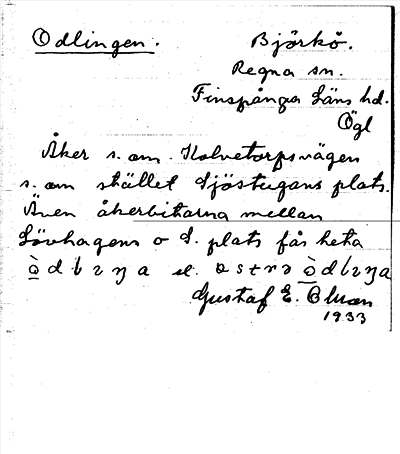 Odlingen.
Björkö.
Regna sn.
Finspånga Läns hd.
Ögl
Åker s. om Kolvetorpsvägen
s. om stället Sjöstugans plats.
Även åkerbitarna mellan
Lövhagen o S. plats får heta
el.
Gustaf E.
1933